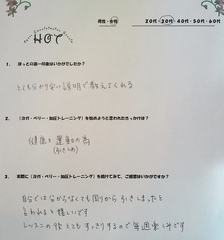 男性・女性
20代・30代・40代・50代・60代
HOT
1. ほっとの第一印象はいかがでしたか？
とても分かり安い説明で教えてくれる
2. （ヨガ・ベリー・加圧トレーニング）を始めようと思われたきっかけは？
健康と運動の為
（引きしめ）
3. 実際に（ヨガ・ベリー・加圧トレーニング）を続けてみて、ご感想はいかがですか？
自分では分からなくても周りから引きしまったと
言われると嬉しいです
レッスンの後とてもすっきりするので毎週楽しみです